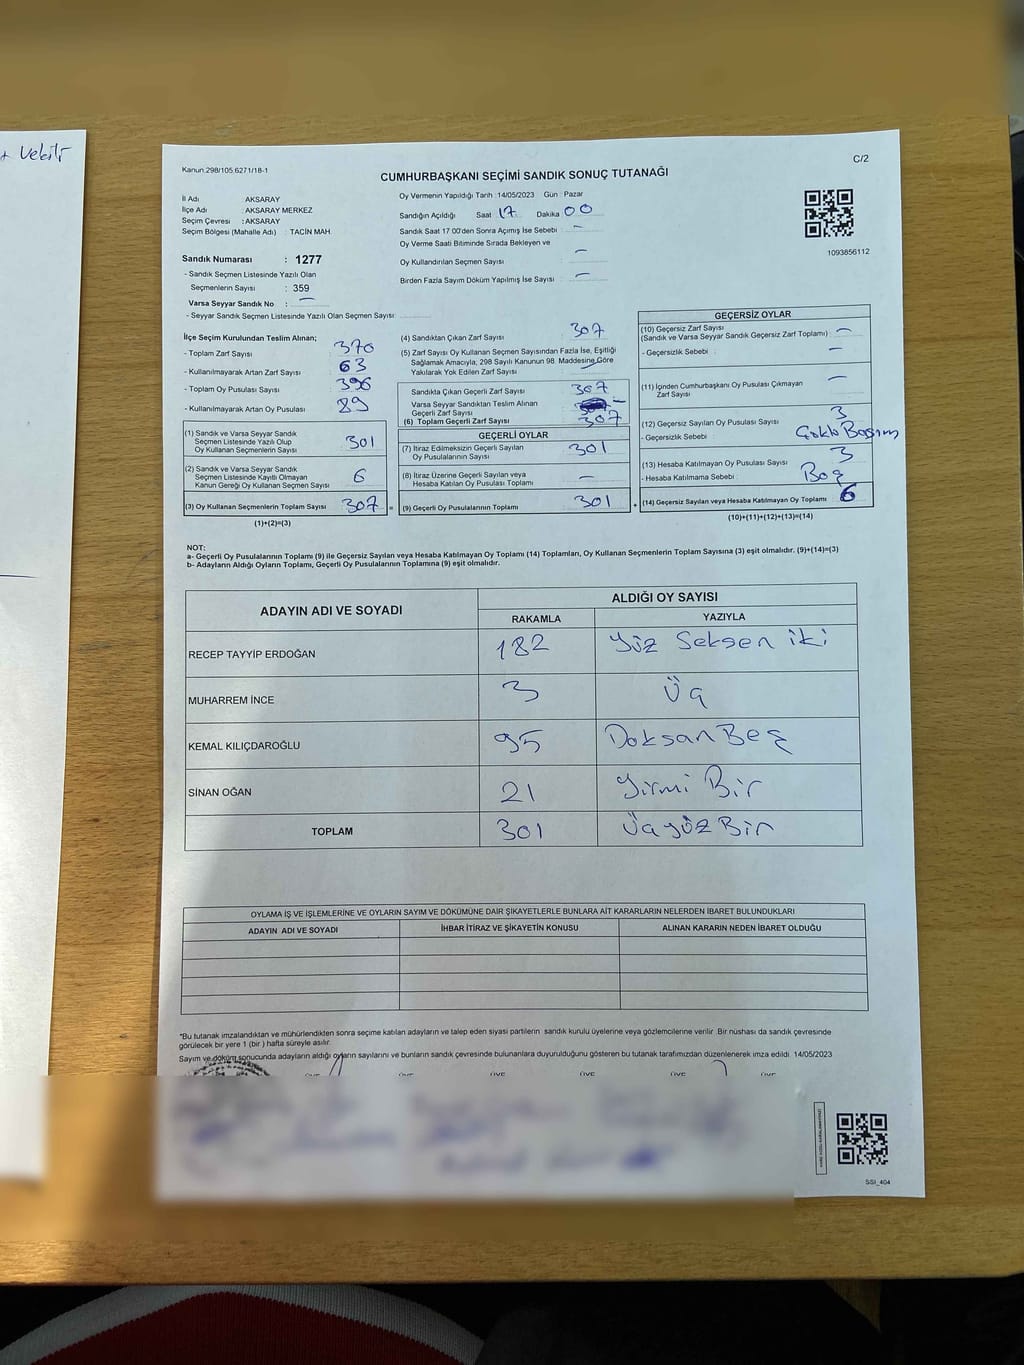 + Vekili
Kanun:298/105,6271/18-1
C/2
CUMHURBAŞKANI SEÇİMİ SANDIK SONUÇ TUTANAĞI
İl Adı : AKSARAY
İlçe Adı : AKSARAY MERKEZ
Seçim Çevresi : AKSARAY
Seçim Bölgesi (Mahalle Adı) : TACİN MAH.
Sandık Numarası : 1277
- Sandık Seçmen Listesinde Yazılı Olan
Seçmenlerin Sayısı : 359
Varsa Seyyar Sandık No : —
- Seyyar Sandık Seçmen Listesinde Yazılı Olan Seçmen Sayısı:
Oy Vermenin Yapıldığı Tarih :14/05/2023 Gün : Pazar
Sandığın Açıldığı Saat 17 Dakika 00
Sandık Saat 17.00'den Sonra Açımış İse Sebebi : —
Oy Verme Saati Bitiminde Sırada Bekleyen ve
Oy Kullandırılan Seçmen Sayısı —
Birden Fazla Sayım Döküm Yapılmış İse Sayısı : —
1093856112
İlçe Seçim Kurulundan Teslim Alınan;
- Toplam Zarf Sayısı : 370
- Kullanılmayarak Artan Zarf Sayısı : 63
- Toplam Oy Pusulası Sayısı : 396
- Kullanılmayarak Artan Oy Pusulası : 89
(1) Sandık ve Varsa Seyyar Sandık
Seçmen Listesinde Yazılı Olup
Oy Kullanan Seçmenlerin Sayısı 301
(2) Sandık ve Varsa Seyyar Sandık
Seçmen Listesinde Kayıtlı Olmayan
Kanun Gereği Oy Kullanan Seçmen Sayısı 6
(3) Oy Kullanan Seçmenlerin Toplam Sayısı 307 =
(1)+(2)=(3)
(4) Sandıktan Çıkan Zarf Sayısı : 307
(5) Zarf Sayısı Oy Kullanan Seçmen Sayısından Fazla İse, Eşitliği
Sağlamak Amacıyla, 298 Sayılı Kanunun 98. Maddesine Göre
Yakılarak Yok Edilen Zarf Sayısı : —
Sandıkta Çıkan Geçerli Zarf Sayısı : 307
Varsa Seyyar Sandıktan Teslim Alınan
Geçerli Zarf Sayısı : —
(6) Toplam Geçerli Zarf Sayısı : 307
GEÇERLİ OYLAR
(7) İtiraz Edilmeksizin Geçerli Sayılan
Oy Pusulalarının Sayısı : 301
(8) İtiraz Üzerine Geçerli Sayılan veya
Hesaba Katılan Oy Pusulası Toplamı : —
(9) Geçerli Oy Pusulalarının Toplamı : 301 +
GEÇERSİZ OYLAR
(10) Geçersiz Zarf Sayısı : —
(Sandık ve Varsa Seyyar Sandık Geçersiz Zarf Toplamı)
- Geçersizlik Sebebi : —
(11) İçinden Cumhurbaşkanı Oy Pusulası Çıkmayan
Zarf Sayısı : —
(12) Geçersiz Sayılan Oy Pusulası Sayısı : 3
- Geçersizlik Sebebi :
(13) Hesaba Katılmayan Oy Pusulası Sayısı : 3
- Hesaba Katılmama Sebebi : Boş
(14) Geçersiz Sayılan veya Hesaba Katılmayan Oy Toplamı : 6
(10)+(11)+(12)+(13)=(14)
NOT:
a- Geçerli Oy Pusulalarının Toplamı (9) ile Geçersiz Sayılan veya Hesaba Katılmayan Oy Toplamı (14) Toplamları, Oy Kullanan Seçmenlerin Toplam Sayısına (3) eşit olmalıdır. (9)+(14)=(3)
b- Adayların Aldığı Oyların Toplamı, Geçerli Oy Pusulalarının Toplamına (9) eşit olmalıdır.
ADAYIN ADI VE SOYADI ALDIĞI OY SAYISI
RAKAMLA YAZIYLA
RECEP TAYYİP ERDOĞAN 182 Yüz Seksen iki
MUHARREM İNCE 3 Üç
KEMAL KILIÇDAROĞLU 95 Doksan Beş
SİNAN OĞAN 21 Yirmi Bir
TOPLAM 301 Üçyüz Bir
OYLAMA İŞ VE İŞLEMLERİNE VE OYLARIN SAYIM VE DÖKÜMÜNE DAİR ŞİKAYETLERLE BUNLARA AİT KARARLARIN NELERDEN İBARET BULUNDUKLARI
ADAYIN ADI VE SOYADI İHBAR İTİRAZ VE ŞİKAYETİN KONUSU ALINAN KARARIN NEDEN İBARET OLDUĞU
*Bu tutanak imzalandıktan ve mühürlendikten sonra seçime katılan adayların ve talep eden siyasi partilerin sandık kurulu üyelerine veya gözlemcilerine verilir. Bir nüshası da sandık çevresinde
görülecek bir yere 1 (bir ) hafta süreyle asılır.
Sayım ve döküm sonucunda adayların aldığı oyların sayılarını ve bunların sandık çevresinde bulunanlara duyurulduğunu gösteren bu tutanak tarafımızdan düzenlenerek imza edildi. 14/05/2023
ÜYE ÜYE ÜYE ÜYE ÜYE ÜYE
SSI_404